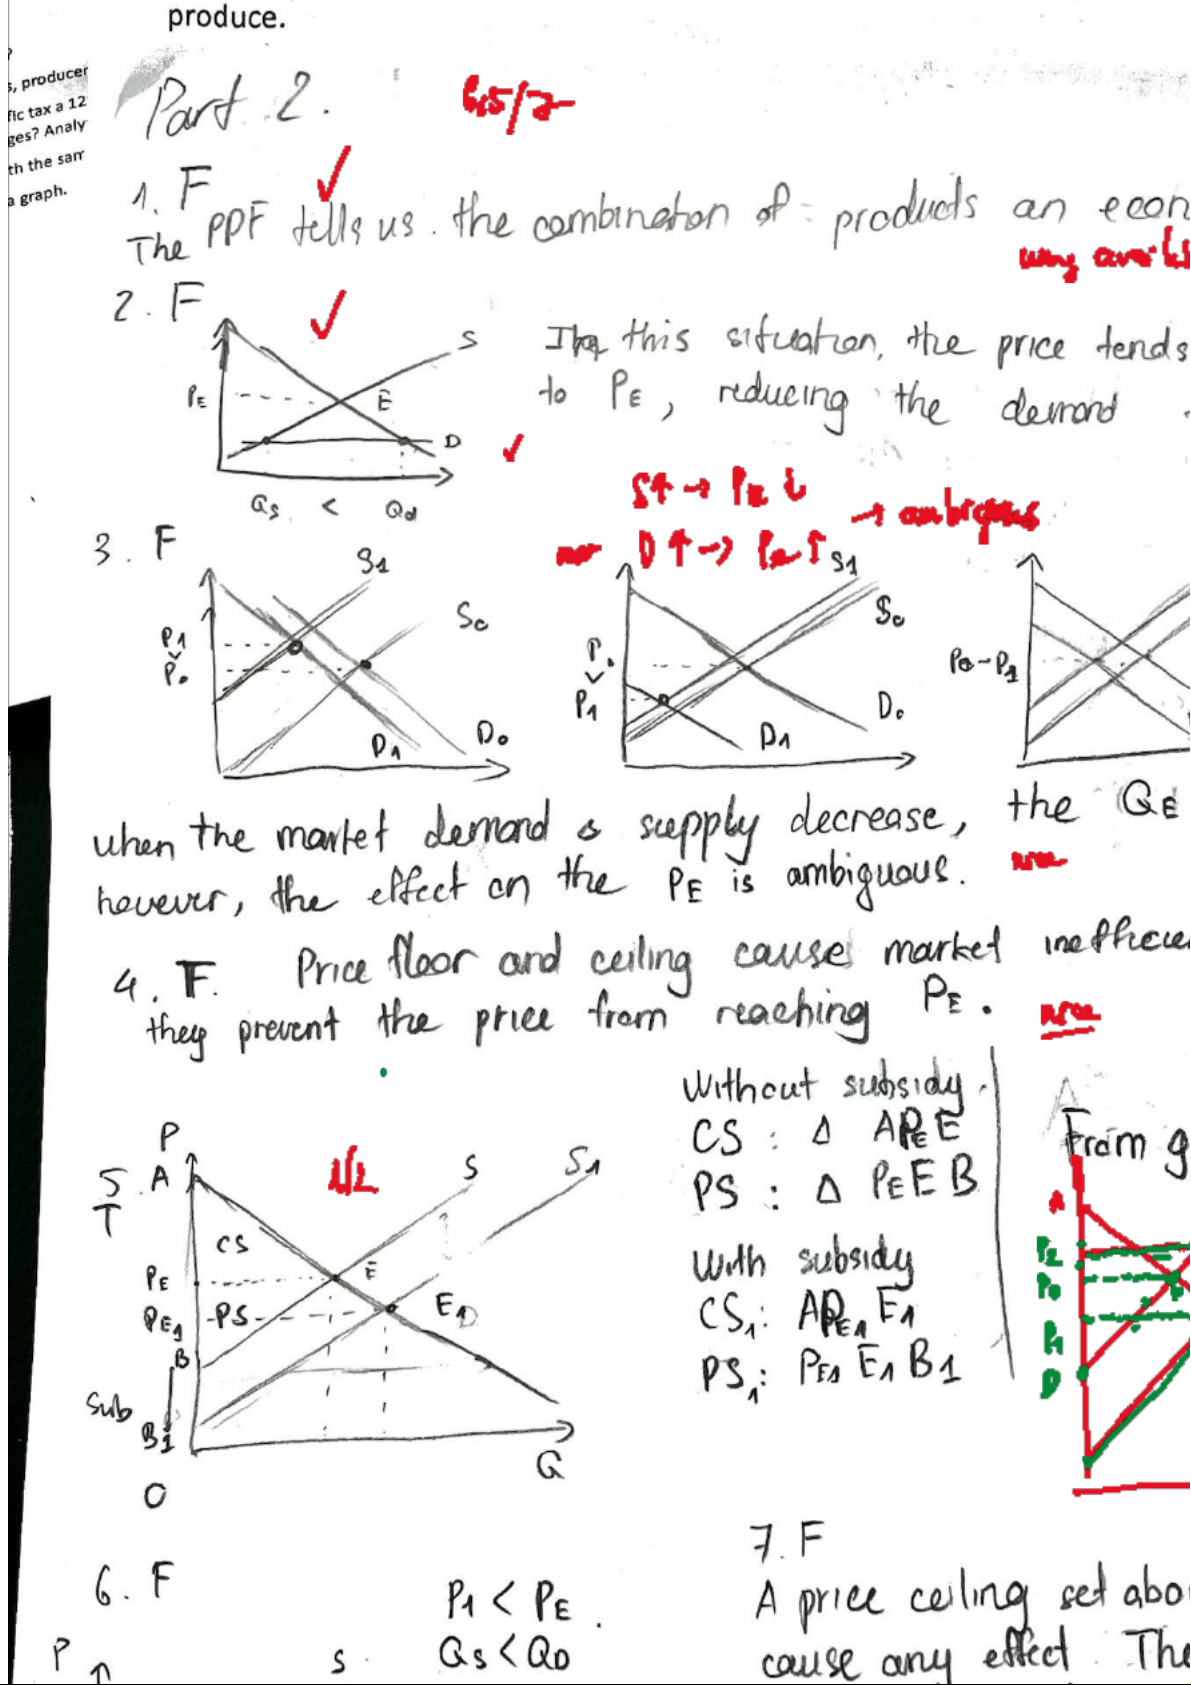 produce.
s, producer
fic tax a 12
ges? Analy
th the sam
a graph.
Part 2.
6.5/7
1. F
The PPF tells us the combination of products an econ
using availab
2. F
S
PE
E
D
Qs < Qd
In this situation, the price tends
to PE, reducing the demand
S↑ → PE ↓
D↑ → PE ↑
→ ambiguous
3. F
S1
S0
P1
P0
D1
D0
S1
S0
P0
P1
D0
D1
P0-P1
when the market demand & supply decrease, the QE
however, the effect on the PE is ambiguous.
nice
4. F. Price floor and ceiling causes market inefficien
they prevent the price from reaching PE.
nice
5.
T
1/2
P
A
S
S1
CS
PE
E
PE1
PS
E1
D
B
Sub
B1
O
Q
Without subsidy
CS: Δ APEE
PS: Δ PEEB
With subsidy
CS1: APE1E1
PS1: PE1E1B1
From g
A
P2
P0
P1
D
6. F
P1 < PE.
Qs < QD
P
S
7. F
A price ceiling set abo
cause any effect. The